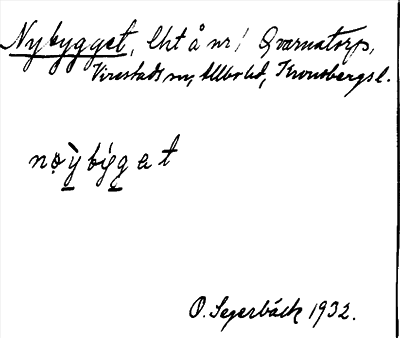 Nybygget, lht å nr 1 Qvarnatorp,
Virestads sn, Allbo hd, Kronobergs l.
nøỳ̠ býg̠et
O. Segerbäck 1932.